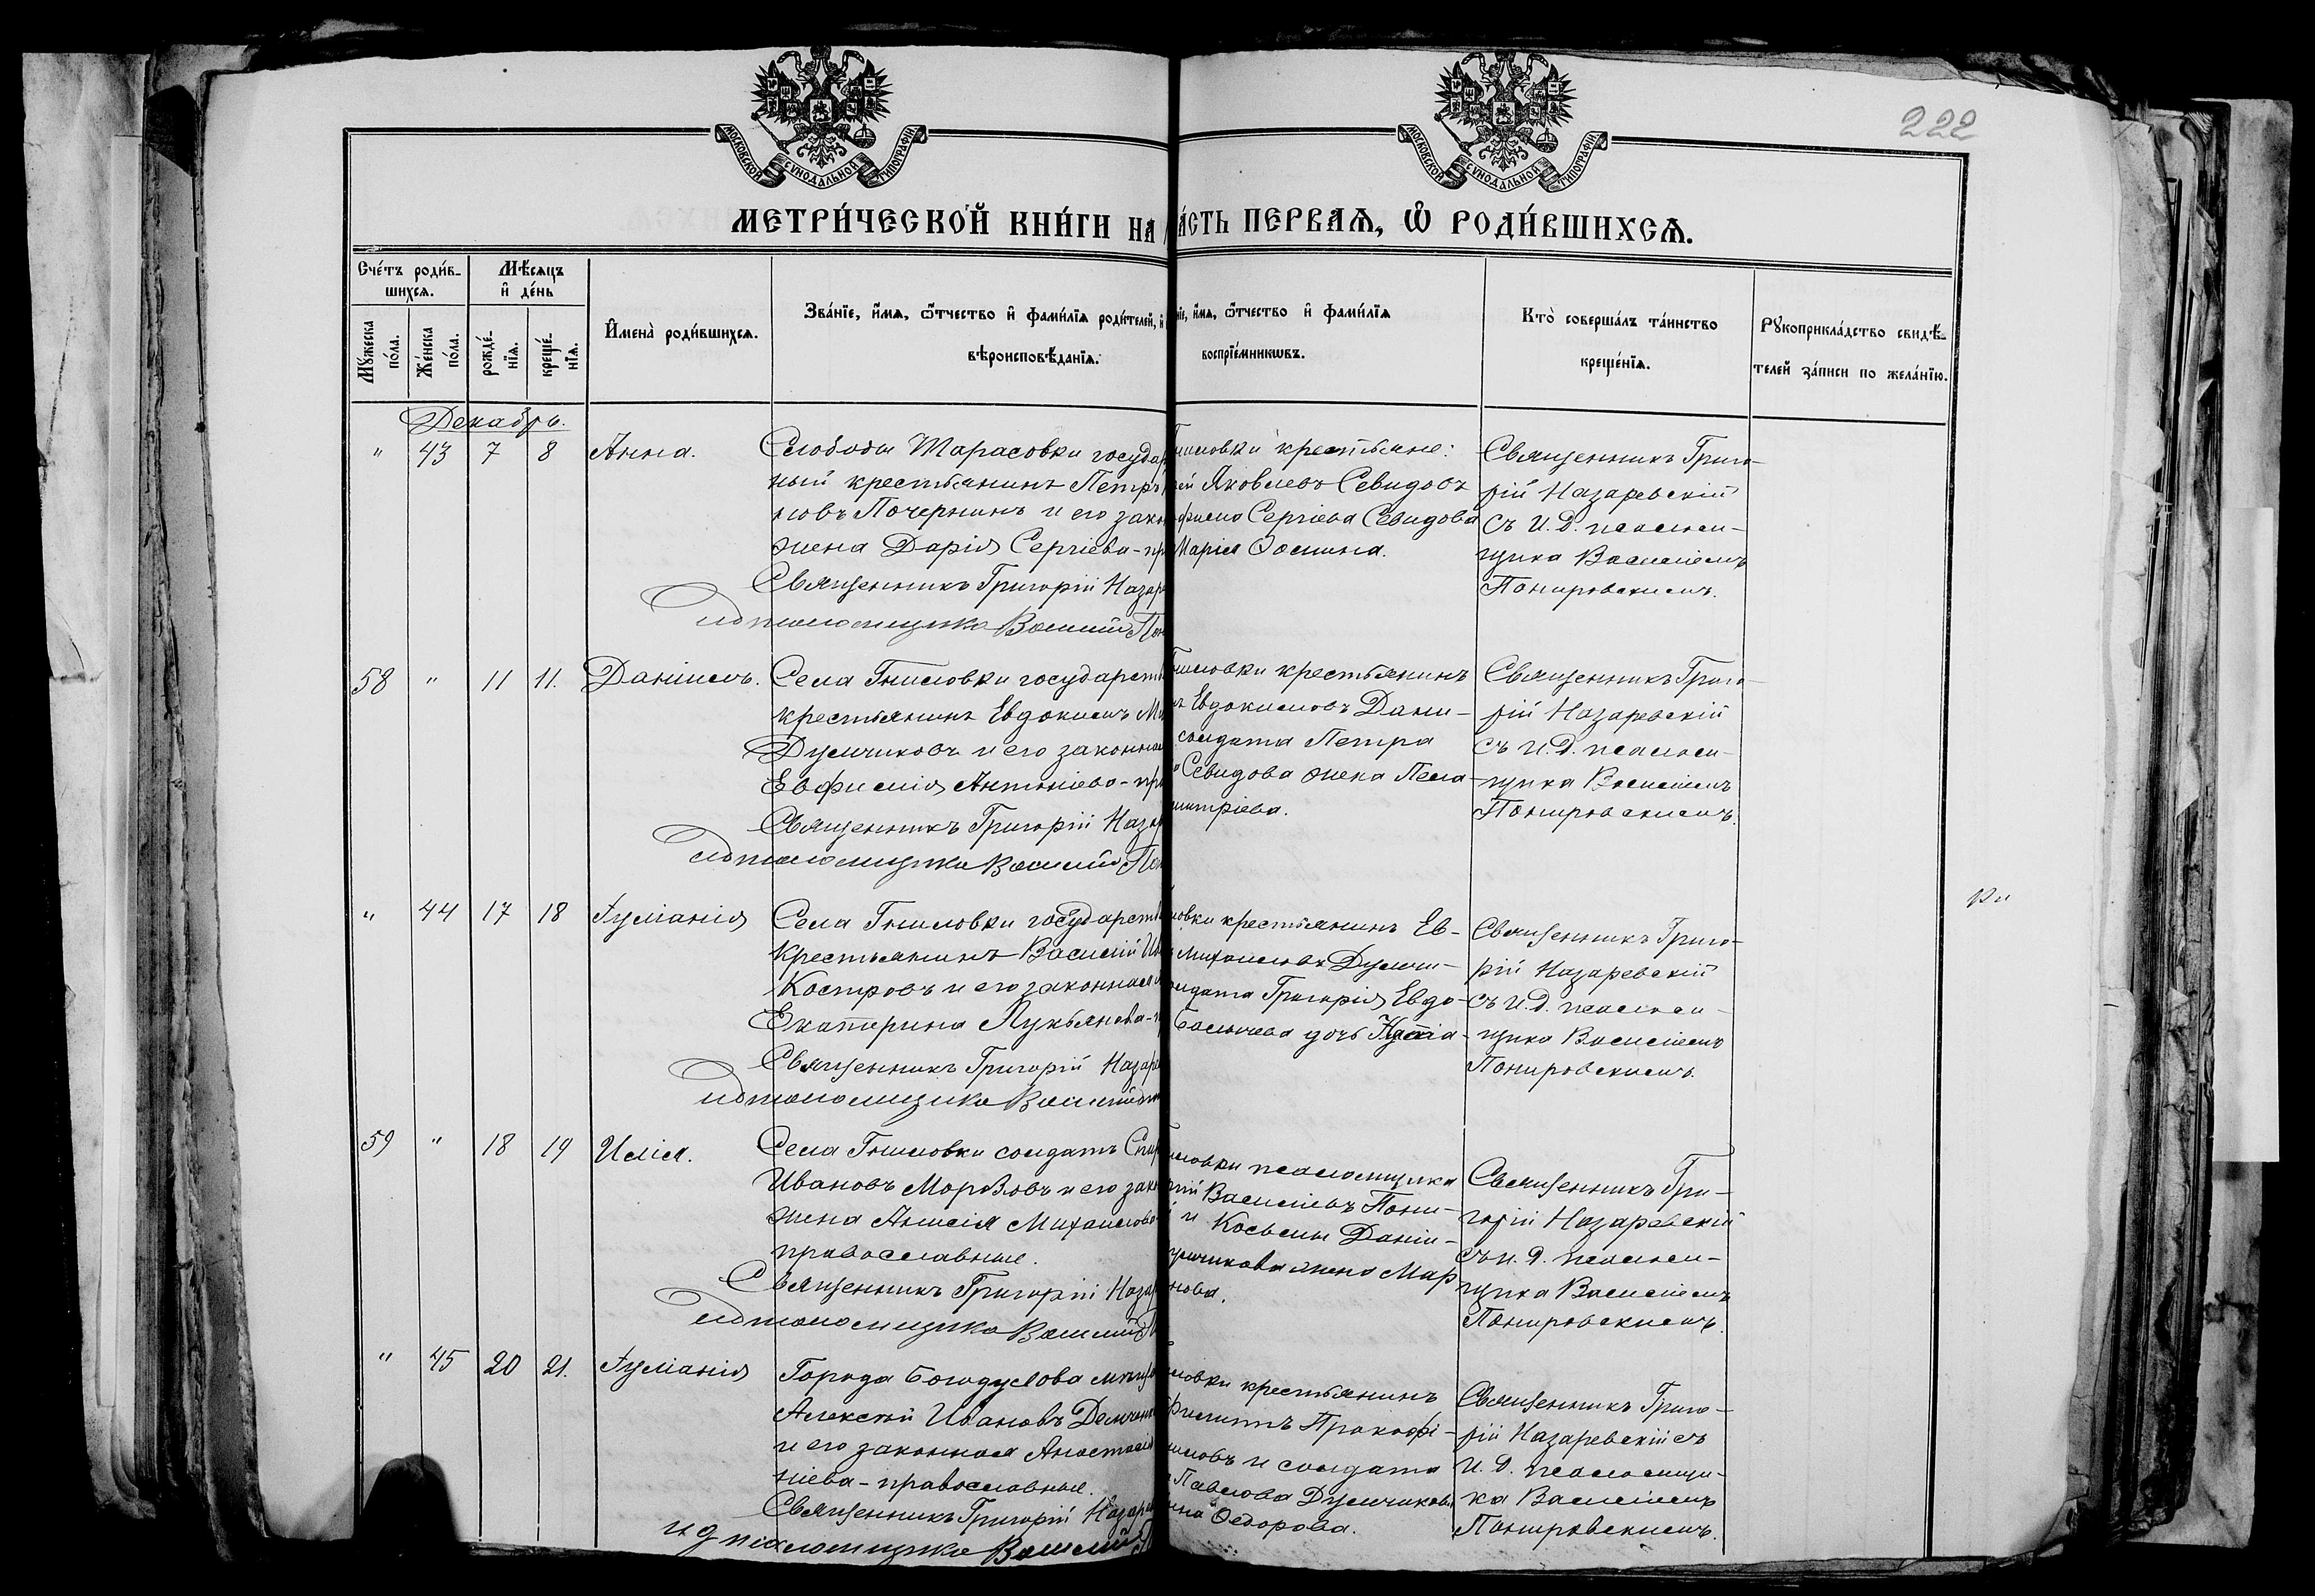 222
МОСКОВСКОЙ СУНОДАЛЬНОЙ ТИПОГРАФІИ
МОСКОВСКОЙ СУНОДАЛЬНОЙ ТИПОГРАФІИ
МЕТРИ́ЧЕСКОЙ КНИ́ГИ НА
А́СТЬ ПЕРВАѦ, Ѡ РОДИ́ВШИХСѦ.
Сче́тъ роди́в-
шихсѧ.
Мѣ́сѧцъ
и де́нь
Мꙋжеска
по́ла.
Же́нска
по́ла.
рожде́-
нїѧ.
креще́-
нїѧ.
Имена̀ роди́вшихсѧ.
Зва́нїе, и́мѧ, ѻ҆́тчество и фами́лїѧ роди́телей, и
вѣроисповѣ́данїѧ.
нїе, и́мѧ, ѻ҆́тчество и фами́лїѧ
воспрїе́мникѡвъ.
Кто̀ соверша́лъ та́инство
креще́нїѧ.
Рꙋкоприкла́дство свидѣ́-
телей за́писи по жела́нїю.
Декабрь.
" 43 7 8 Анна.
Слободы Тарасовки государ
ный крестьянинъ Петръ
новъ Почернинъ и его зако
жена Дарія Сергіева - пр
Священникъ Григорій Назар
ид псаломщика Василій Пон
ниловки крестьяне:
ій Яковлевъ Севидовъ
фимо Сергіева Севидова
Марія Фомина.
Священникъ Григо-
рій Назаревскій
съ И. Д. псалом-
щика Василіемъ
Понировскимъ.
58 " 11 11. Даніилъ.
Села Гниловки государст
крестьянинъ Евдокимъ Ми
Думчиковъ и его законная
Евфимія Антоніева - пр
Священникъ Григорій Назар
ид псаломщика Василій Пон
ниловки крестьянинъ
ъ Евдокимовъ Дани-
солдата Петра
Севидова жена Пела-
митріева.
Священникъ Григо-
рій Назаревскій
съ И. Д. псалом-
щика Василіемъ
Понировскимъ.
" 44 17 18 Іуліанія
Села Гниловки государст
крестьянинъ Василій Ив
Костровъ и его законная
Екатерина Лукьянова -
Священникъ Григорій Назаре
ид псаломщика Василій
овки крестьянинъ Ев-
Михаиловъ Думчи-
олдата Григорія Евдо-
дочь
Священникъ Григо-
рій Назаревскій
съ И. Д. псалом-
щика Василіемъ
Понировскимъ.
ри
59 " 18 19 Илія.
Села Гниловки солдатъ Спи
Ивановъ Морозовъ и его зако
жена Анисія Михаилова
православные.
Священникъ Григорій Назар
ид псаломщика Василій
иловки псаломщика
рій Василіевъ Пони-
й и Косьмы Даніи-
умчикова жена Мар
нова.
Священникъ Гри-
горій Назаревскій
съ И. Д. псалом-
щика Василіемъ
Понировскимъ.
" 45 20 21. Іуліанія
Города Богодухова мѣщ
Алексѣй Ивановъ Демченк
и его законная Анастасія
ніева - православные.
Священникъ Григорій Назаре
ид псаломщика Василій
ловки крестьянинъ
Филиппъ Прокофі-
иловъ и солдата
Павлова Думчикова
на Ѳедорова.
Священникъ Григо-
рій Назаревскій съ
И. Д. псаломщи-
ка Василіемъ
Понировскимъ.